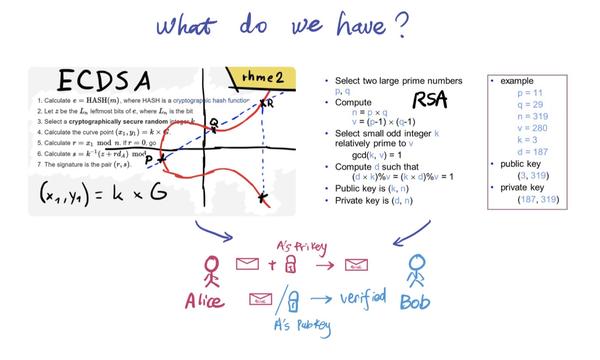 What do we have?
ECDSA
rhme2
1. Calculate e = HASH(m), where HASH is a cryptographic hash function
2. Let z be the Lₙ leftmost bits of e, where Lₙ is the bit
3. Select a cryptographically secure random integer k
4. Calculate the curve point (x₁, y₁) = k × G
5. Calculate r = x₁ mod n. if r = 0, go
6. Calculate s = k⁻¹(z + rd_A) mod
7. The signature is the pair (r, s).
P
Q
R
(x₁, y₁) = k × G
RSA
• Select two large prime numbers
p, q
• Compute
n = p × q
v = (p-1) × (q-1)
• Select small odd integer k
relatively prime to v
gcd(k, v) = 1
• Compute d such that
(d × k)%v = (k × d)%v = 1
• Public key is (k, n)
• Private key is (d, n)
• example
p = 11
q = 29
n = 319
v = 280
k = 3
d = 187
• public key
(3, 319)
• private key
(187, 319)
A's PriKey
+
Alice
/
verified
Bob
A's PubKey